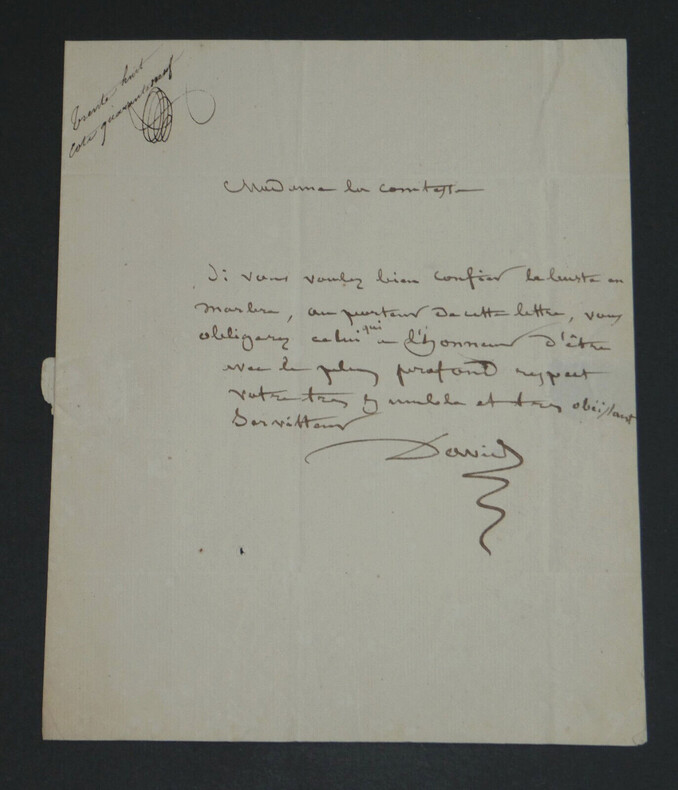 trente huit
cote quarante neuf
Madame la comtesse
Si vous voulez bien confier le buste en
marbre, au porteur de cette lettre, vous
obligerez celui qui a l'honneur d'être
avec le plus profond respect
votre tres humble et tres obéissant
Serviteur
David